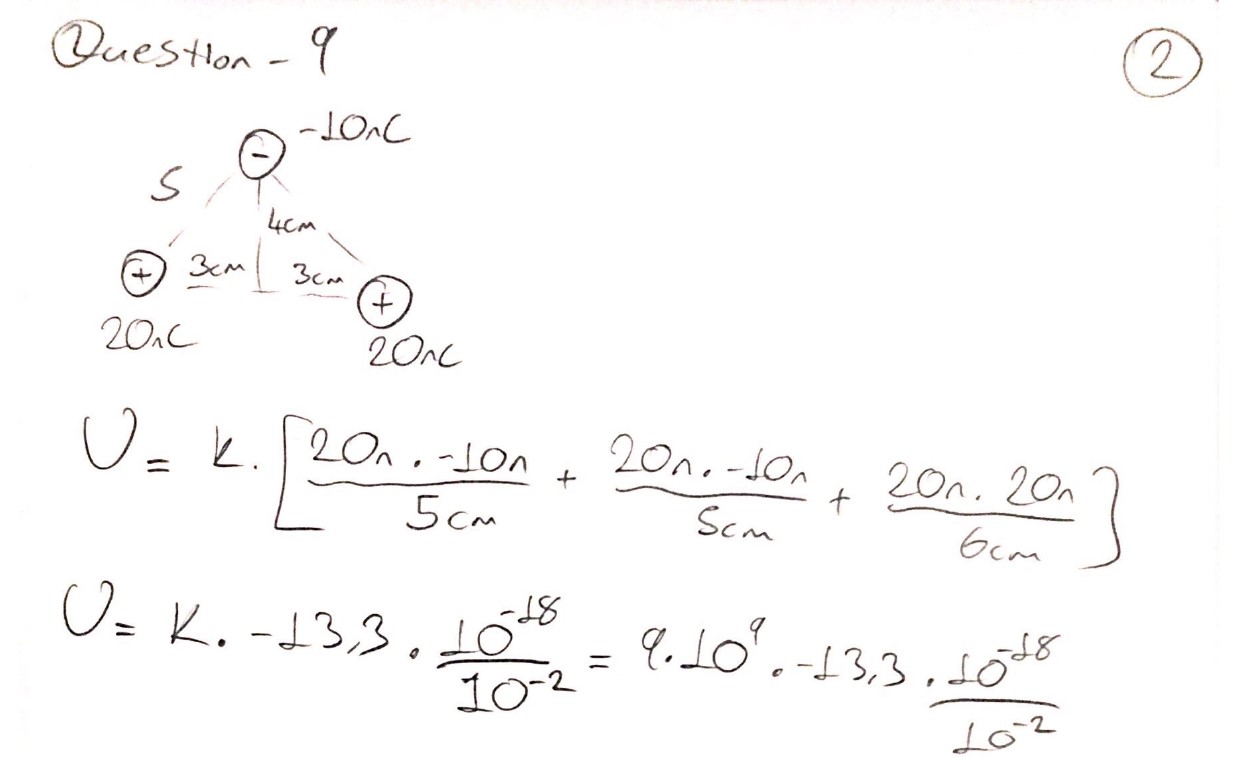 Question - 9
2
-10nC
5
4cm
3cm 3cm
20nC
20nC
U = k. [20n . -10n / 5cm + 20n. -10n / 5cm + 20n. 20n / 6cm]
U = K. -13,3 . 10^-18 / 10^-2 = 9.10^9 . -13,3 . 10^-18 / 10^-2